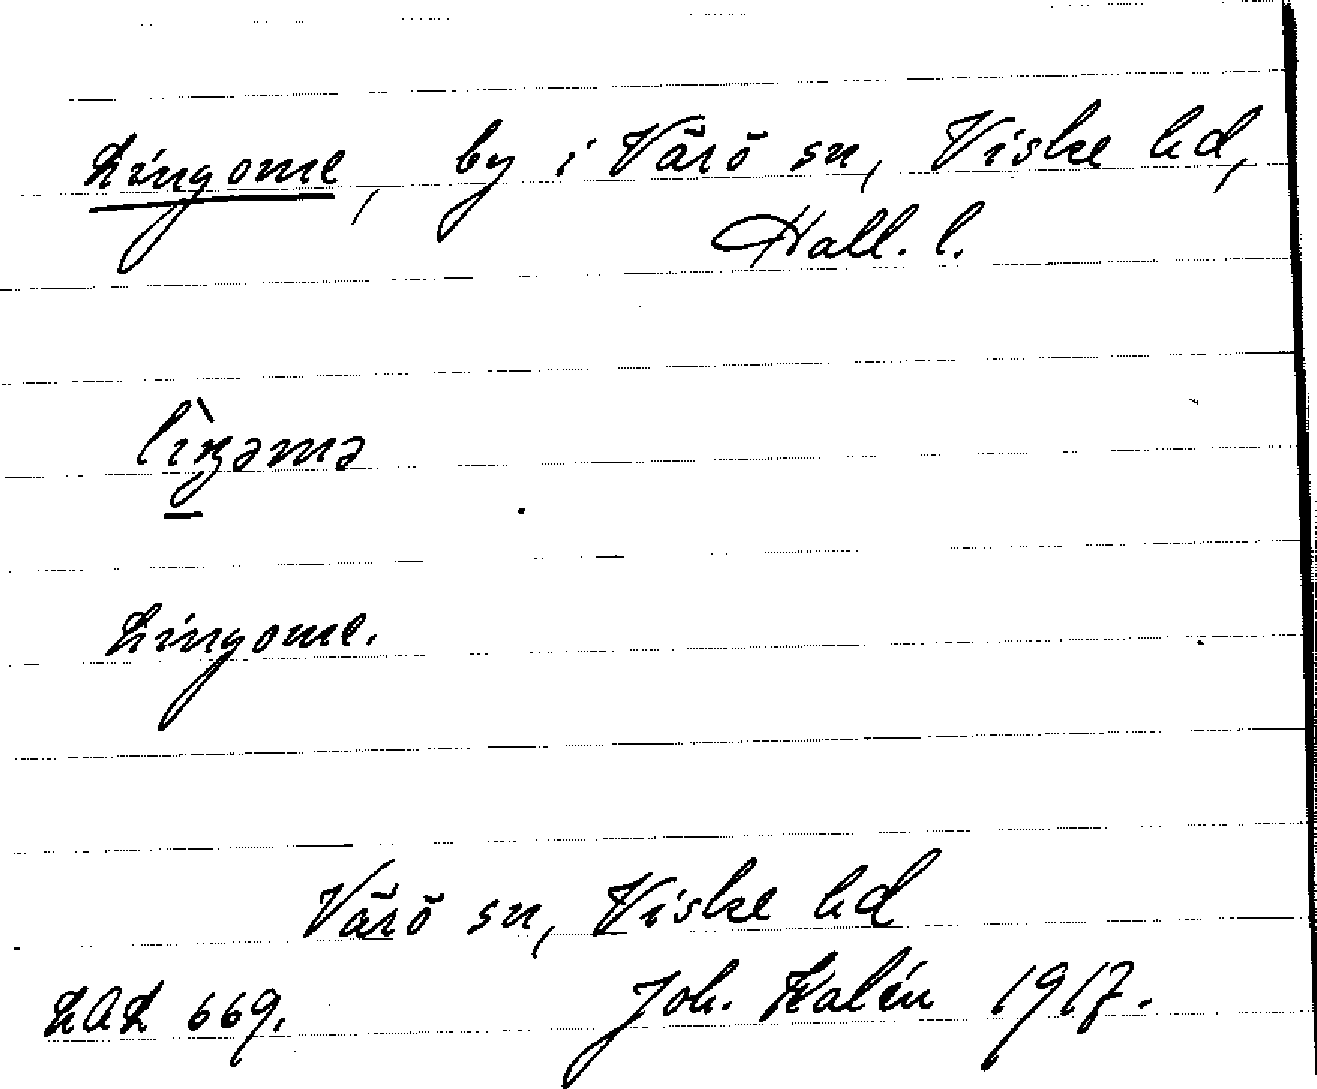 Lingome, by i Värö sn, Viske hd,
Hall. l.
lìŋəmə
Lingome.
Värö sn, Viske hd
LAL 669. Joh. Kalén 1917.